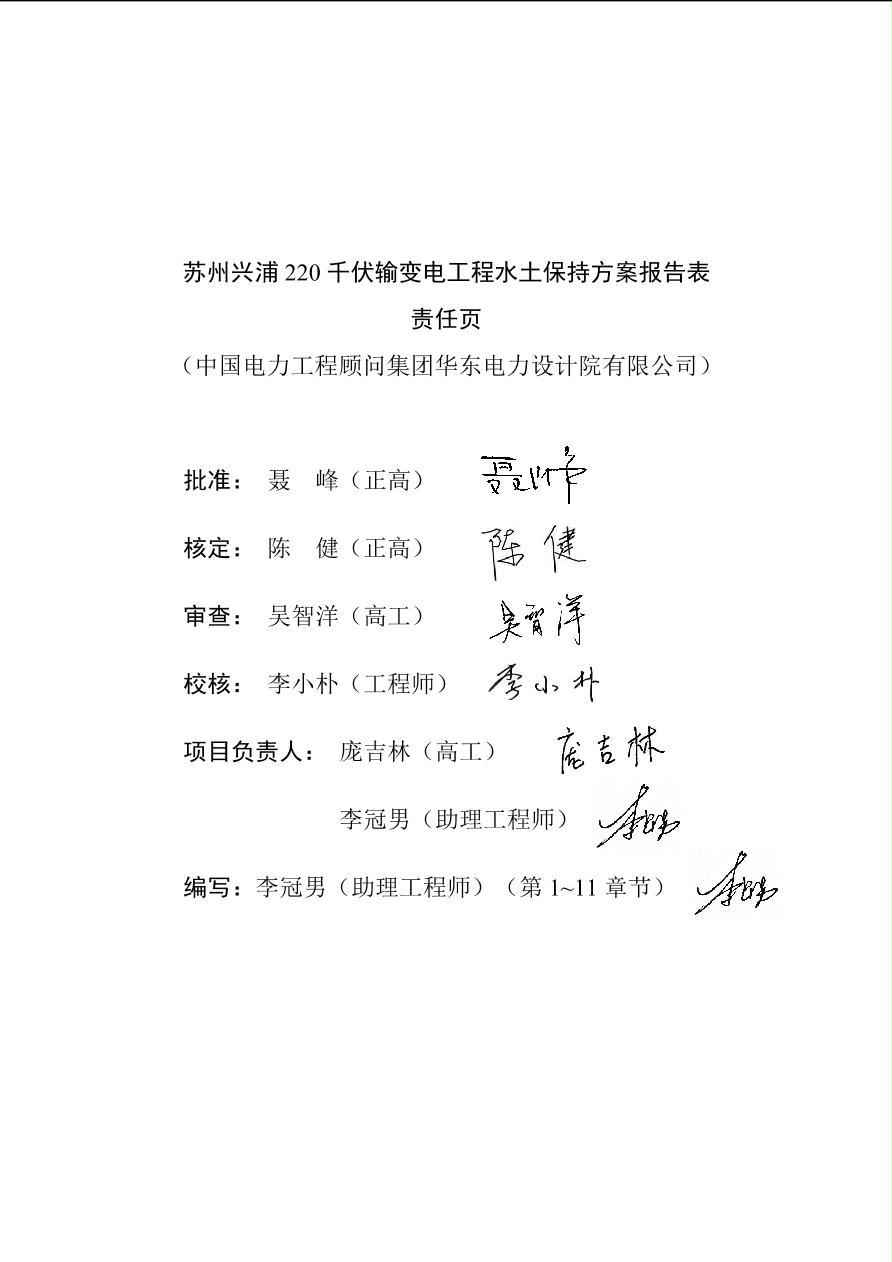 苏州兴浦 220 千伏输变电工程水土保持方案报告表
责任页
（中国电力工程顾问集团华东电力设计院有限公司）
批准： 聂 峰（正高） 聂峰
核定： 陈 健（正高） 陈健
审查： 吴智洋（高工） 吴智洋
校核： 李小朴（工程师） 李小朴
项目负责人： 庞吉林（高工） 庞吉林
李冠男（助理工程师） 李冠男
编写：李冠男（助理工程师）（第 1~11 章节） 李冠男